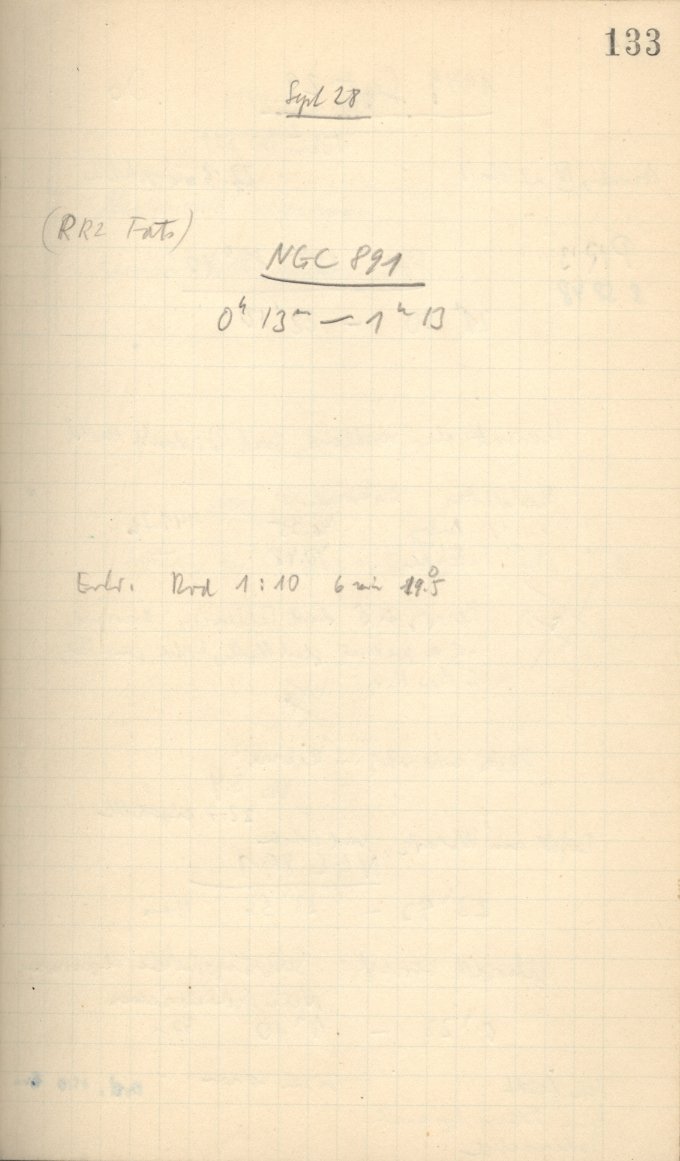 133
Sept 28
(RR2 Foto)
NGC 891
0ʰ 13ᵐ — 1ʰ 13
Entw. Rod 1:10 6 min 19.5°